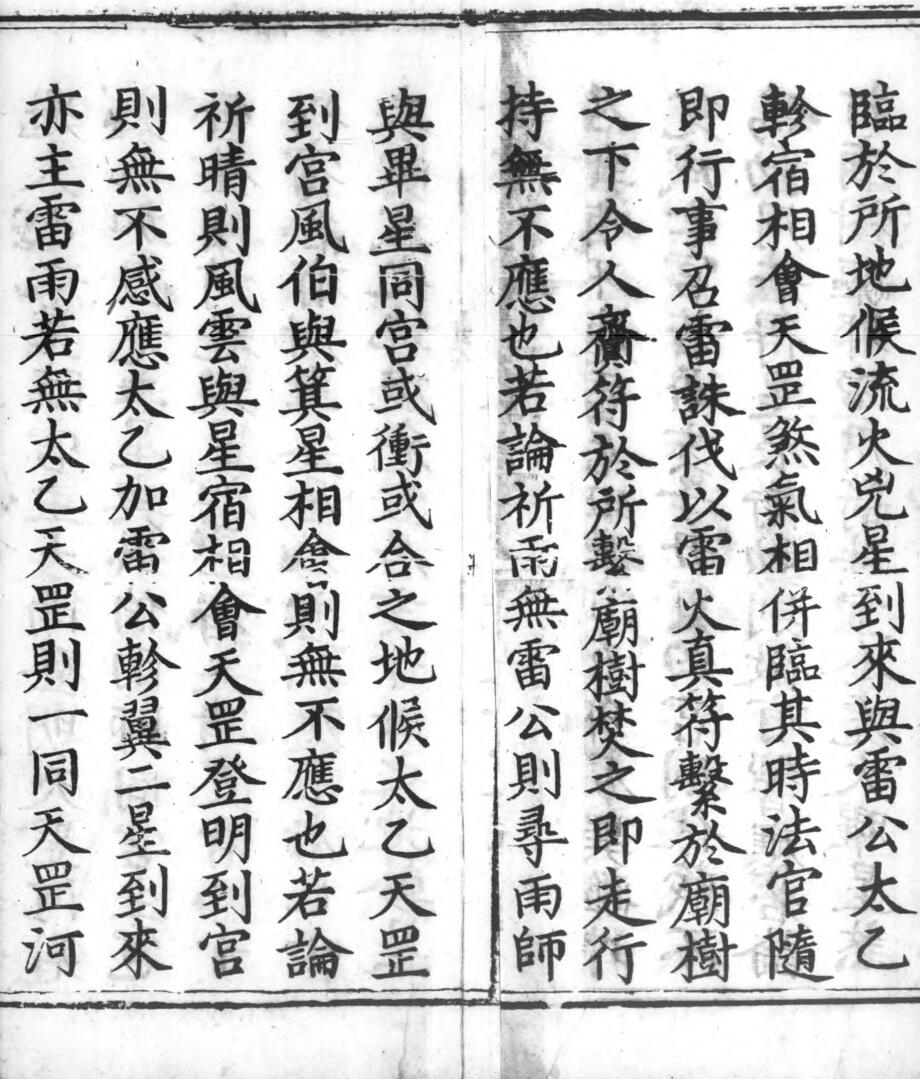 臨於所地候流火兇星到來與雷公太乙
軫宿相會天罡煞氣相併臨其時法官隨
即行事召雷誅伐以雷火真符繫於廟樹
之下令人齎符於所繫廟樹焚之即走行
持無不應也若論祈雨無雷公則尋雨師
與畢星同宮或衝或合之地候太乙天罡
到宮風伯與箕星相會則無不應也若論
祈晴則風雲與星宿相會天罡登明到宮
則無不感應太乙加雷公軫翼二星到來
亦主雷雨若無太乙天罡則一同天罡河